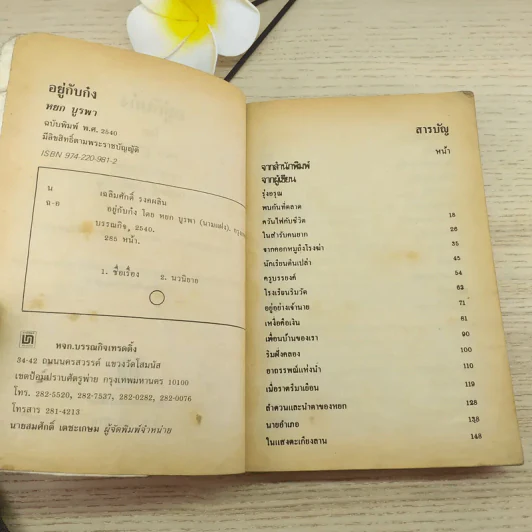 อยู่กับก๋ง
หยก บูรพา
ฉบับพิมพ์ พ.ศ. 2540
มีลิขสิทธิ์ตามพระราชบัญญัติ
ISBN 974-220-961-2
น
เฉลิมศักดิ์ รงคผลิน
ฉ-อ
อยู่กับก๋ง โดย หยก บูรพา (นามแฝง).
บรรณกิจ, 2540.
285 หน้า.
1. ชื่อเรื่อง 2. นวนิยาย
หจก.บรรณกิจเทรดดิ้ง
34-42 ถนนนครสวรรค์ แขวงวัดโสมนัส
เขตป้อมปราบศัตรูพ่าย กรุงเทพมหานคร 10100
โทร. 282-5520, 282-7537, 282-0282, 282-0076
โทรสาร 281-4213
นายสมศักดิ์ เตชะเกษม ผู้จัดพิมพ์จำหน่าย
สารบัญ
หน้า
จากสำนักพิมพ์
จากผู้เขียน
รุ่งอรุณ
พบกันที่ตลาด
ควันไฟกับชีวิต 18
ในสำรับคนยาก 26
จากคอกหมูถึงโรงฆ่า 35
นักเรียนตีนเปล่า 45
ครูบรรยงค์ 54
โรงเรียนริมวัด 62
อยู่อย่างเจ้านาย 71
เหงื่อคือเงิน 81
เพื่อนบ้านของเรา 90
ริมฝั่งคลอง 100
อาถรรพณ์แห่งน้ำ 110
เมื่อราตรีมาเยือน 119
ลำดวนและน้ำตาของหยก 128
นายอำเภอ 138
ในแสงตะเกียงลาน 148